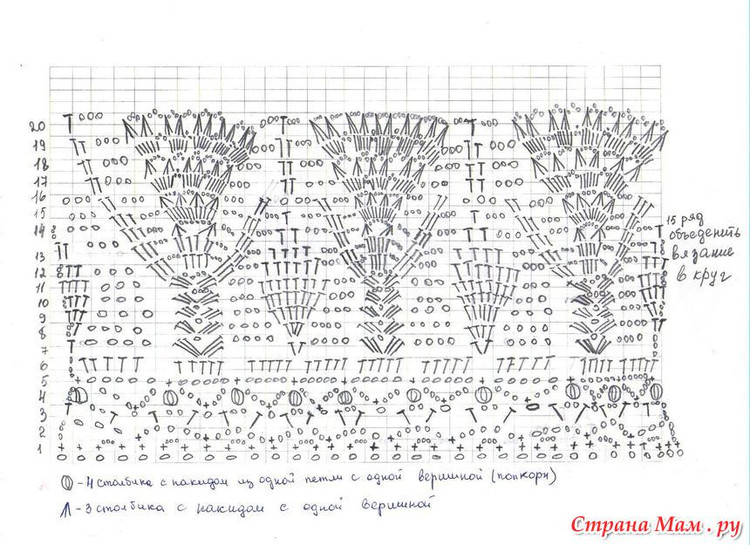 20
19
18
17
16
15
14
13
12
11
10
9
8
7
6
5
4
3
2
1
15 ряд
объеденить
вязание
в круг
- 4 столбика с накидом из одной петли с одной вершиной (попкорн)
- 3 столбика с накидом с одной вершиной
Страна Мам.ру